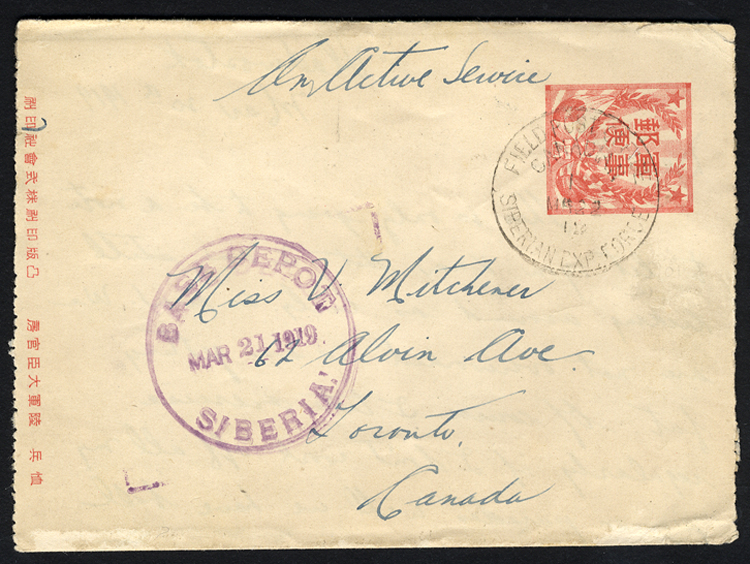 On Active Service
軍事
郵便
FIELD POST
SIBERIAN EXP. FORCE
BASE DEPOT
MAR 21 1919
SIBERIA.
Miss V. Mitchener
62 Alvin Ave.
Toronto,
Canada
恤兵 陸軍大臣官房 凸版印刷株式會社印刷